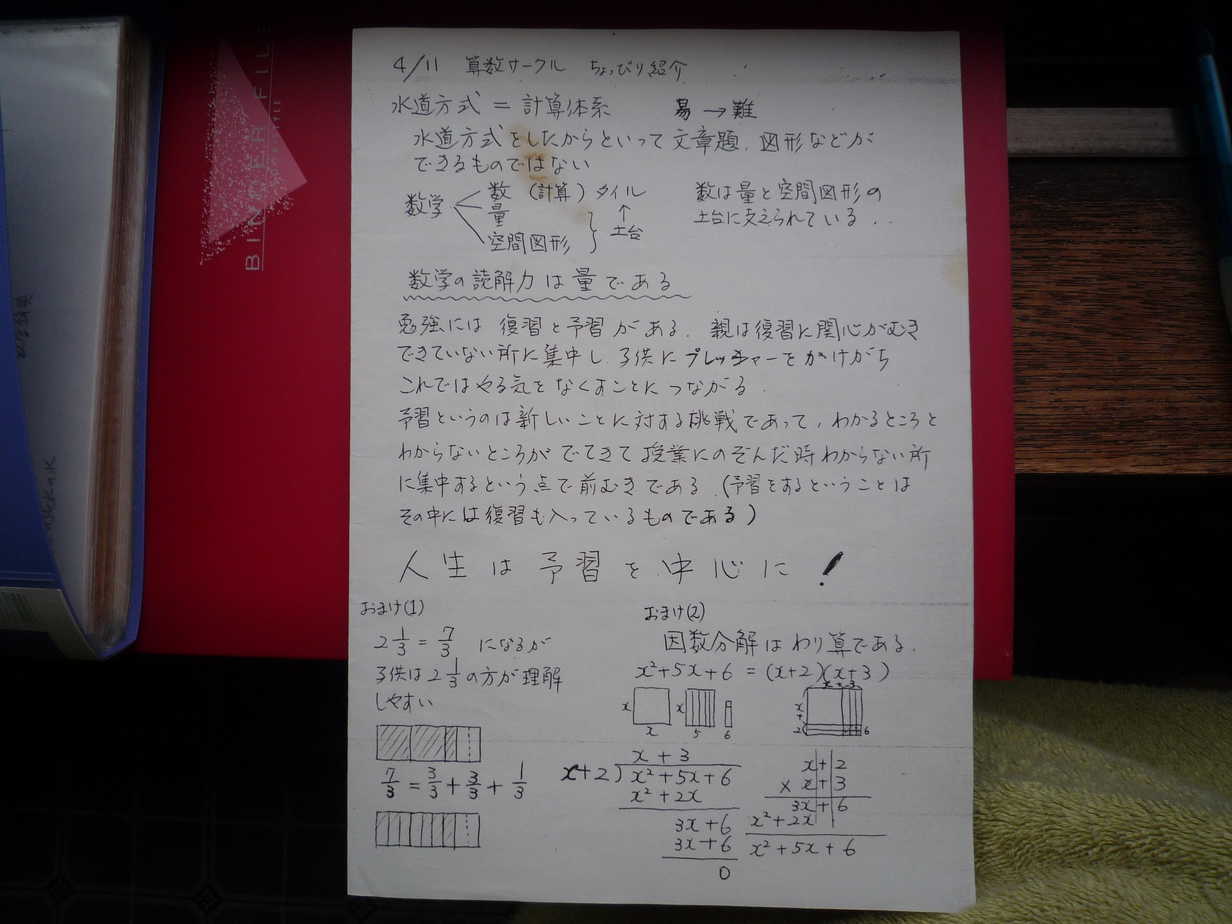 4/11 算数サークル ちょっぴり紹介
水道方式 = 計算体系 易→難
水道方式をしたからといって文章題、図形などが
できるものではない
数学 数 (計算) タイル
量 ↑
空間図形 土台
数は量と空間図形の
土台に支えられている..
数学の読解力は量である
勉強には復習と予習がある。親は復習に関心がむき
できていない所に集中し、子供にプレッチャーをかけがち
これではやる気をなくすことにつながる.
予習というのは新しいことに対する挑戦であって、わかるところと
わからないところがでてきて授業にのぞんだ時わからない所
に集中するという点で前むきである.(予習をするということは
その中には復習も入っているものである)
人生は予習を中心に!
おまけ(1)
2 1/3 = 7/3 になるが
子供は2 1/3の方が理解
しやすい
7/3 = 3/3 + 3/3 + 1/3
おまけ(2)
因数分解はわり算である.
x²+5x+6 = (x+2)(x+3)
x x x 5 6
x+3
x+2 6
x+3
x+2)x²+5x+6
x²+2x
3x+6
3x+6
0
x+2
× x+3
3x+6
x²+2x
x²+5x+6
BINDER FILE